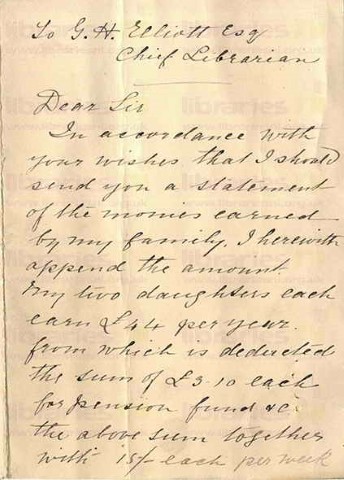 To G. H. Elliott Esq
Chief Librarian
Dear Sir
In accordance with
your wishes that I should
send you a statement
of the monies earned
by my family, I herewith
append the amount.
My two daughters each
earn £44 per year.
from which is deducted
the sum of £3.10 each
for pension fund &c.
the above sum together
with 15/- each per week